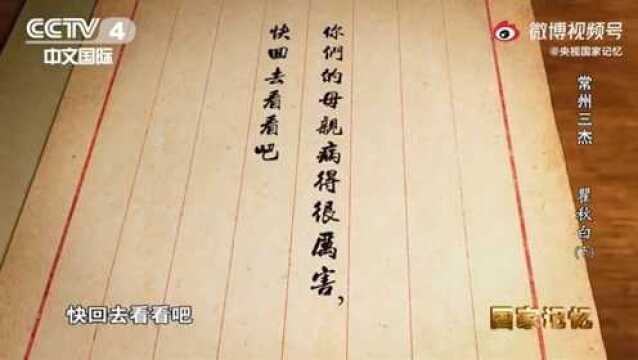 CCTV 4
中文国际
微博视频号
@央视国家记忆
你們的母親病得很厲害，
快回去看看吧
常州三杰 瞿秋白
快回去看看吧
国家记忆